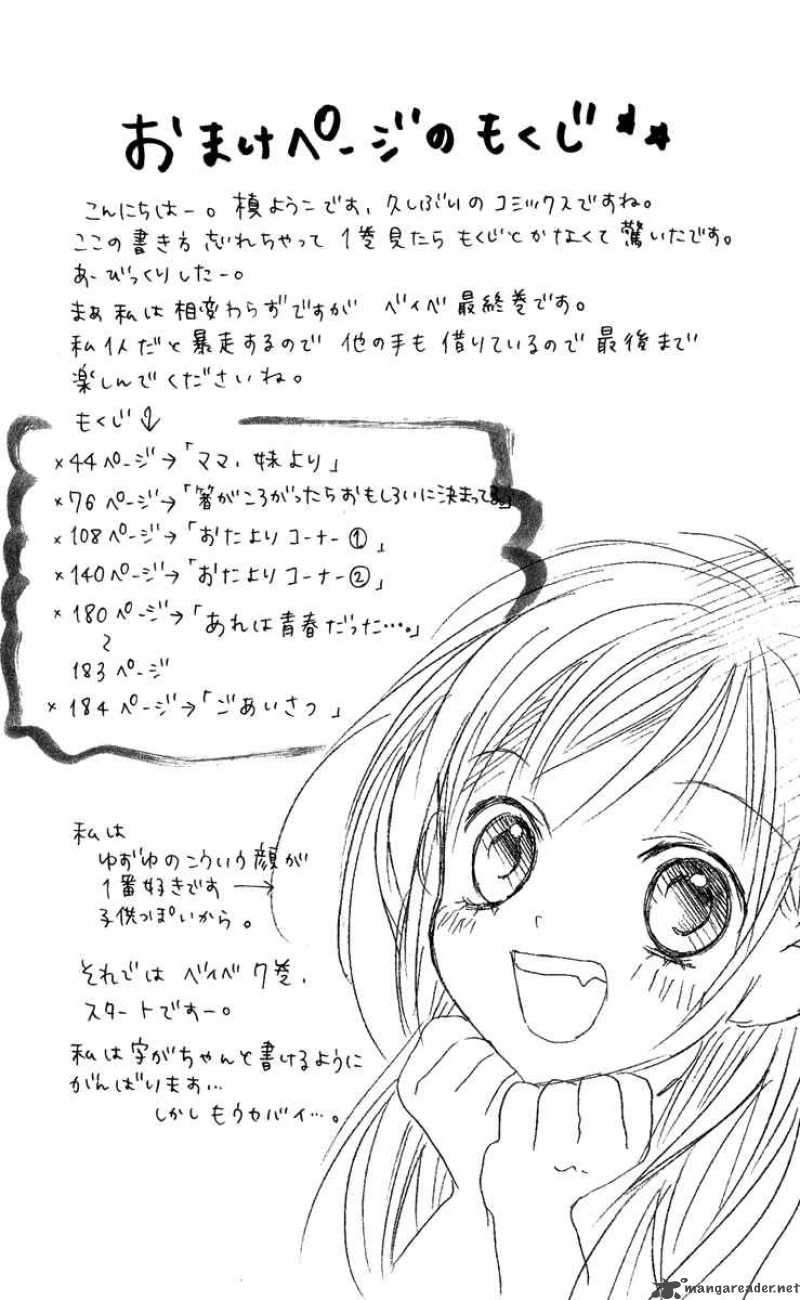 おまけページのもくじ**
こんにちはー。槙ようこです、久しぶりのコミックスですね。
ここの書き方忘れちゃって1巻見たらもくじとかなくて驚いたです。
あーびっくりしたー。
まぁ私は相変わらずですがベイベ最終巻です。
私1人だと暴走するので他の手も借りているので最後まで
楽しんでくださいね。
もくじ↓
×44ページ→「ママ、妹より」
×76ページ→「箸がころがったらおもしろいに決まってる」
×108ページ→「おたよりコーナー①」
×140ページ→「おたよりコーナー②」
×180ページ→「あれは青春だった…。」
〜
183ページ
×184ページ→「ごあいさつ」
私は
ゆずゆのこういう顔が
1番好きです→
子供っぽいから。
それではベイベ7巻、
スタートですー。
私は字がちゃんと書けるように
がんばります…
しかしもうヤバイ…。
mangareader.net